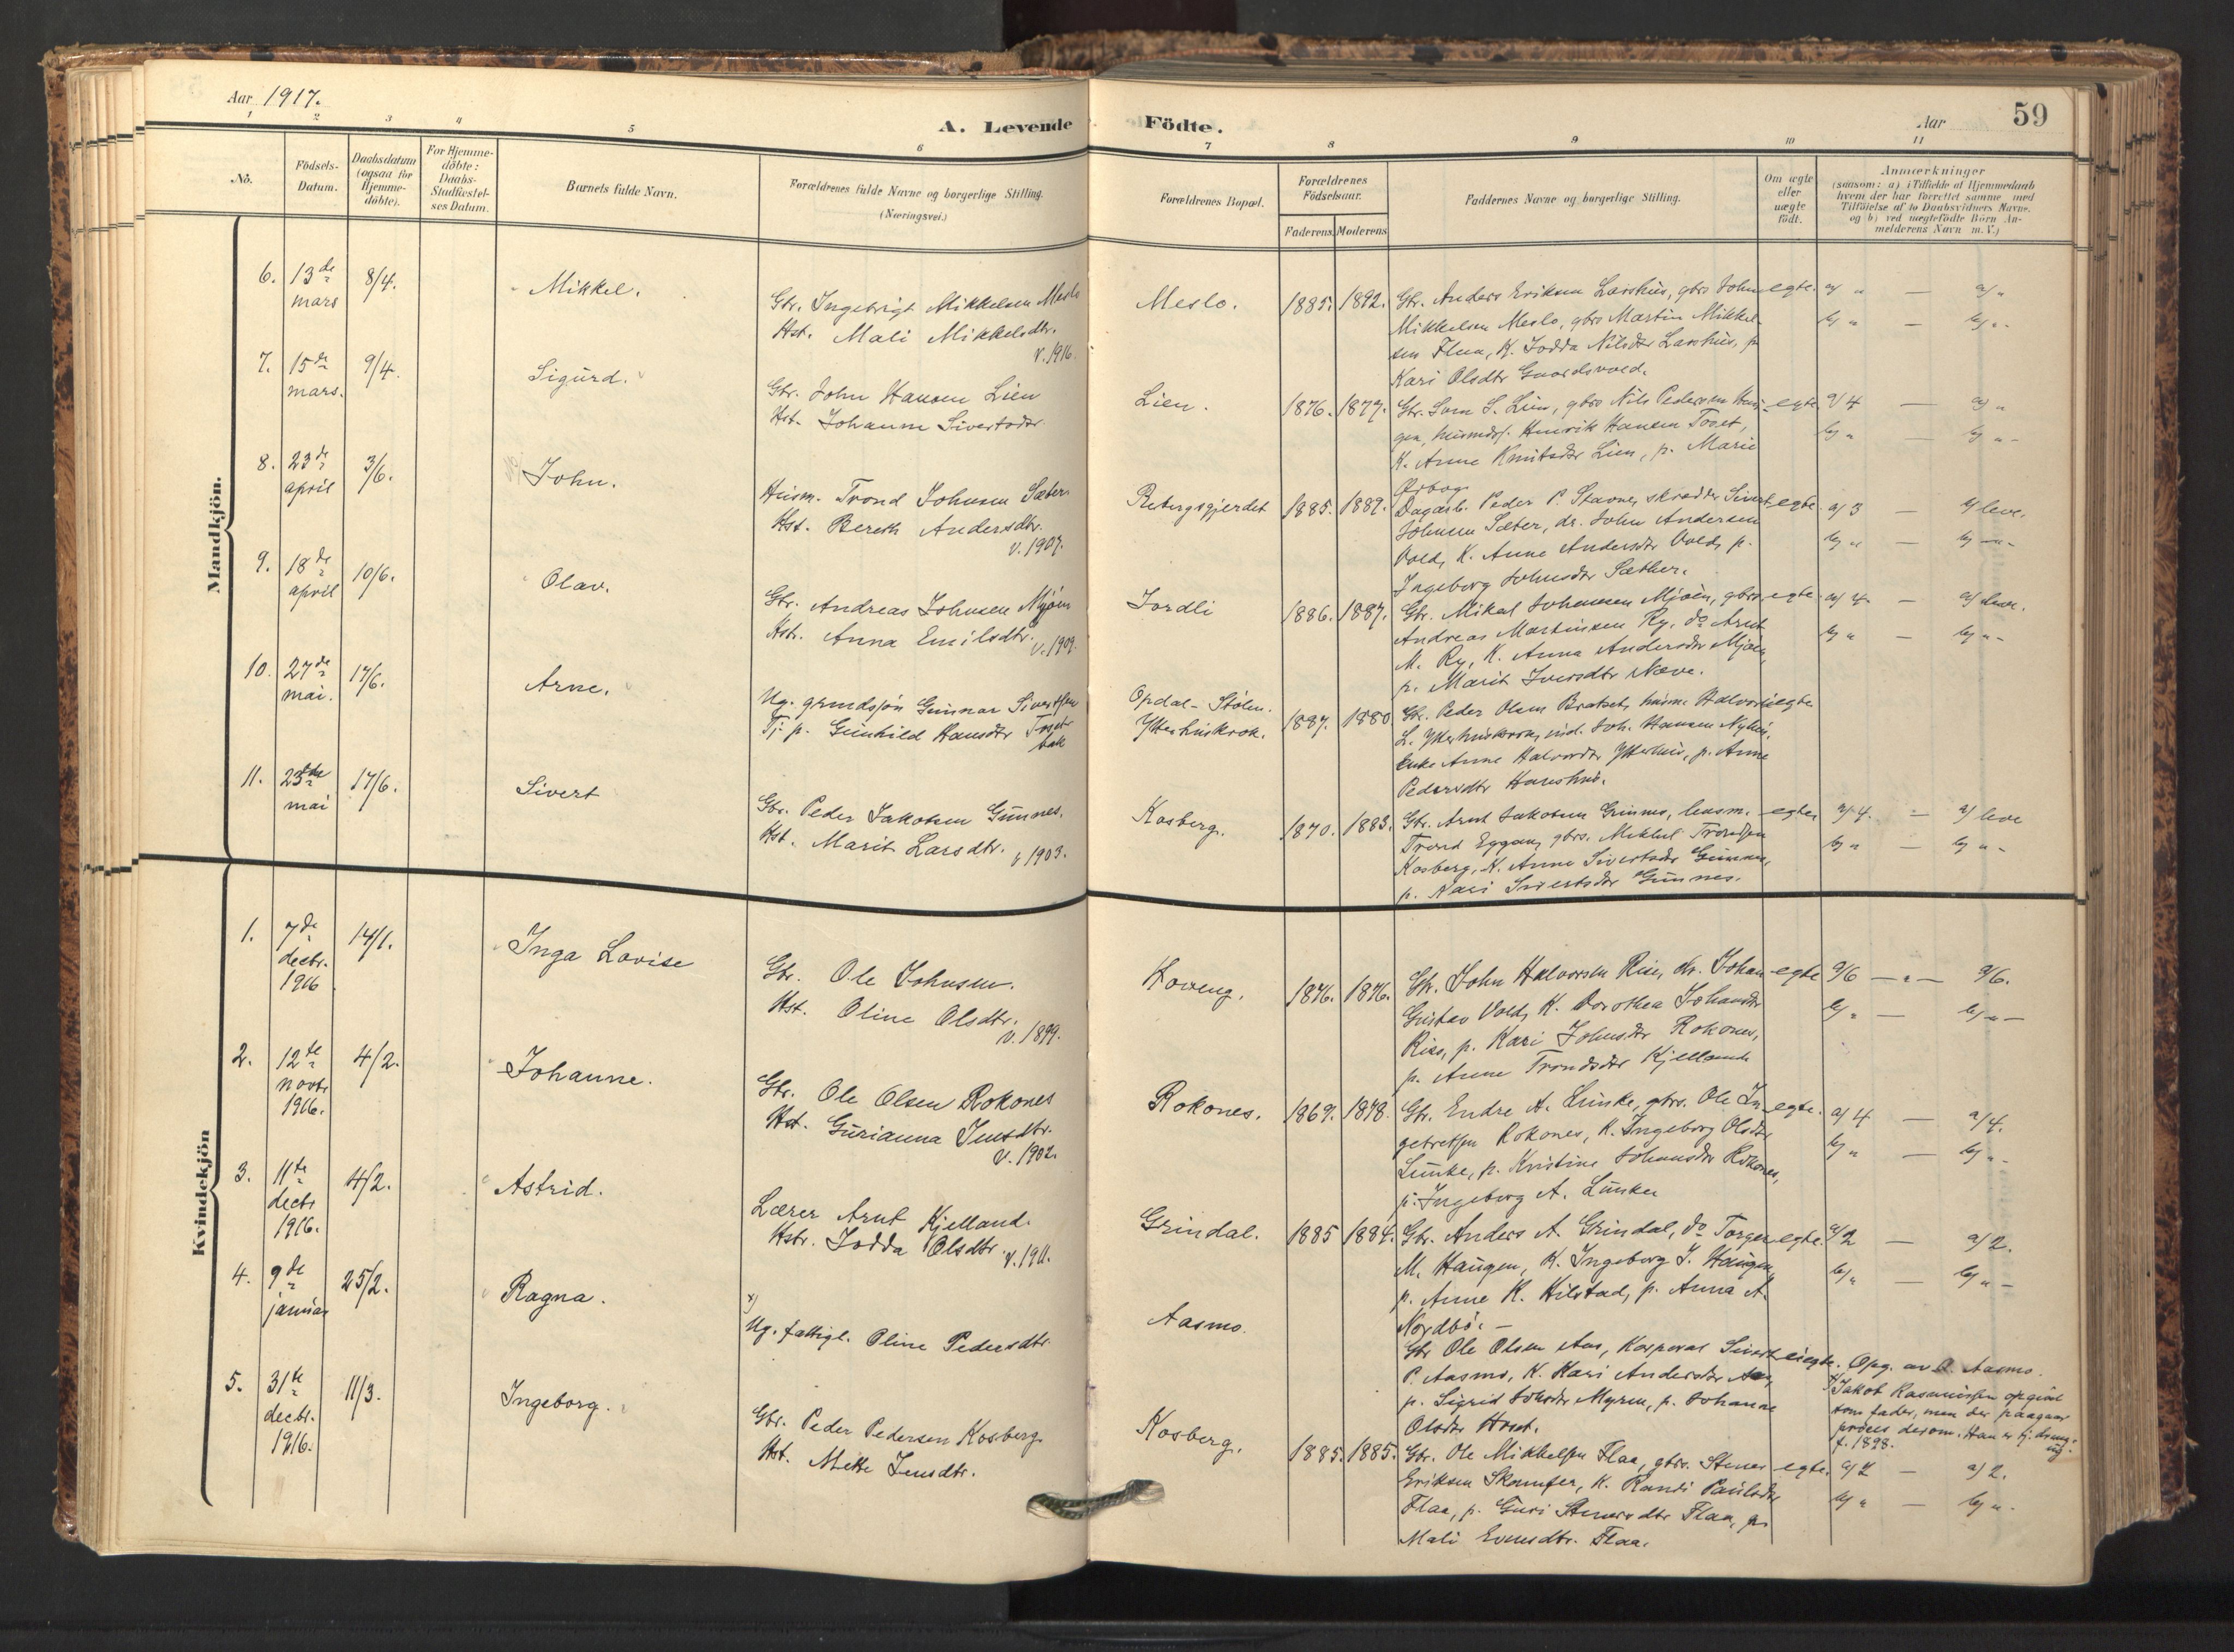 Aar 1917.
A. Levende Födte.
Aar
59
1 2 3 4 5 6 7 8 9 10 11
No.
Födsels-
Datum.
Daabsdatum
(ogsaa for
Hjemme-
döbte).
For Hjemme-
döbte:
Daabs-
Stadfæstel-
ses Datum.
Barnets fulde Navn.
Forældrenes fulde Navne og borgerlige Stilling.
(Næringsvei.)
Forældrenes Bopæl.
Forældrenes
Födselsaar.
Faderens. Moderens
Faddernes Navne og borgerlige Stilling.
Om ægte
eller
uægte
födt.
Anmærkninger
(saasom: a) i Tilfælde af Hjemmedaab
hvem der har forrettet samme med
Tilföielse af to Daabsvidners Navne.
og b) ved uægtefödte Börn An-
melderens Navn m. V.)
Mandkjön.
6. 13de mars 8/4. Mikkel.
Gbr. Ingebrigt Mikkelsen Meslo
Hst. Mali Mikkelsdtr.
V. 1916.
Meslo. 1885. 1892.
Gbr. Anders Eriksen Larshus, gbrs John
Mikkelsen Meslo, gbrs Martin Mikkel-
sen Flaa, K. Jodda Nilsdtr Larshus, p
Kari Olsdtr
egte. a/ " — a/ "
b/ " — b/ " -
7. 15de mars. 9/4. Sigurd.
Gbr. John Hansen Lien
Hst. Johanne Sivertsdtr
Lien. 1876. 1877.
Gbr. S. Lien, gbrs Nils Pedersen
Henrik Hansen Toset,
K. Anne Knutsdtr Lien, p. Marie
egte a/ 4 — a/ "
b/ " — b/ " -
8. 23de april 3/6. John.
Husm. Trond Johnsen Sæter.
Hst. Bereth Andersdtr.
V. 1907.
Rebergsgjerdet 1885. 1882.
Dagarb. Peder P. Stavne, skrædder Sivert
Johnsen Sæter, dr. John Andersen
Vold, K. Anne Andersdtr Vold, p.
Ingeborg Johnsdtr Sæther.
egte. a/ 3 — a/ leve.
b/ " — b/ — " -
9. 18de april 10/6. Olav.
Gbr. Andreas Johnsen Mjøen
Hst. Anna Emilsdtr. V. 1909.
Jordli 1886. 1887.
Gbr. Mikal Johansen Mjøen, gbrs
Andreas Martinsen Ry, do Arnt
M. Ry, K. Anna Andersdtr Mjøen,
p. Marit Iversdtr Næve.
egte a/ 4 — a/ leve.
b/ " — b/ " -
10. 27de mai. 17/6. Arne.
Ug. grundsjön Gunnar Sivertsen
Tj. p. Gunhild Hansdtr
Opdal - Stölen.
Ytterhuskrok. 1887. 1880
Gbr. Peder Olsen Bratset, husm. Halvord
L. Ytterhuskrok, ind. Joh. Hansen
Enke Anne Halvordtr Ytterhus, p. Anne
Pedersdtr Hanshus.
uegte
11. 23de mai 17/6. Sivert
Gbr. Peder Jakobsen Gunnes.
Hst. Marit Larsdtr. V 1903.
Kosberg. 1870. 1883.
Gbr. Arnt Jakobsen Gunnes, husm.
Trond Eggan, gbrs. Mikkel Trondsen
Kosberg, K. Anne Sivertsdtr Gunnes,
p. Kari Sivertsdtr Gunnes.
egte a/ 4. — a/ leve
b/ " — b/ " -
Kvindekjön
1. 7de decbr. 1916 14/1. Inga Lovise
Gbr. Ole Johnsen.
Hst. Oline Olsdtr.
V. 1899.
Hoveng. 1876. 1876.
Gbr. John Halvorsen Rise, dr. Johan
Gustav Vold, K. Dorothea Johansdtr
Rise, p. Kari Johnsdtr Rokones,
p. Anne Trondsdtr Kjelland
egte a/6 — " — a/6.
b/ " — b/ " -
2. 12te novbr 1916. 4/2. Johanne.
Gbr. Ole Olsen Rokones
Hst. Gurianna Jensdtr.
V. 1902.
Rokones. 1869. 1878.
Gbr. Endre A. Lunke, gbrs. Ole In-
gebretsen Rokones, K. Ingeborg Olsdtr
Lunke, p. Kristine Johansdtr Rokones,
p. Ingeborg A. Lunke
egte. a/ 4 — a/4.
b/ " — b/ " -
3. 11te decbr 1916. 4/2. Astrid.
Lærer Arnt Kjelland.
Hstr. Jodda Olsdtr. V. 1911.
Grindal. 1885 1884.
Gbr. Anders A. Grindal, do Torger
M. Haugen, K. Ingeborg J. Haugen,
p. Anne K. Kilstad, p. Anna A.
Nordbö. —
egte. a/2 — a/2.
b/ " — b/ " -
4. 9de januar 25/2. Ragna.
x)
Ug. fattigl. Oline Pedersdtr.
Aasmo.
Gbr Ole Olsen Aas, Korporal Sivert
P. Aasmo, K. Kari Andersdtr Aas,
p. Sigrid Johsdtr Myren, p. Johanne
Olsdtr Horst.
uegte. Opg. av O. Aasmo.
x) Jakob Rasmussen opgivet
som fader, men der paagaar
proces derom. Han er tj.dreng.
f. 1898. ug.
5. 31te decbr. 1916. 11/3. Ingeborg.
Gbr. Peder Pedersen Kosberg
Hst. Mette Jensdtr.
Kosberg. 1885. 1885.
Gbr. Ole Mikkelsen Flaa, gbrs. Stener
Eriksen Skamfer, K. Randi Paulsdtr
Flaa, p. Guri Stenersdtr Flaa, p.
Mali Evensdtr. Flaa.
egte. a/ 2 — a/ 2.
b/ " — b/ " -